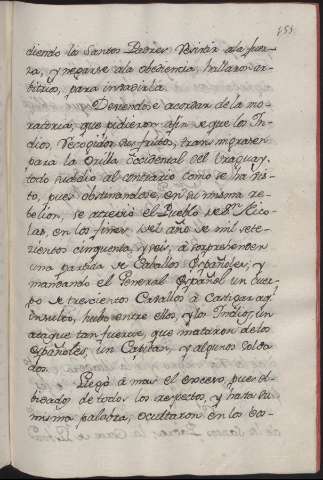 151
diendo la Santos Padres resistir ala fuer-
za, y negarse ala obediencia, hallaron ar-
bitrios, para invadirla.
Deviendose acordar de la mo-
ratoria, que pidieron afin de que los In-
dios, recogidos sus frutos, transmigrasen
para la orilla Occidental del Uraguay,
todo sucedio al contrario como se ha vis-
to, pues obstinandose, en su misma re-
belion, se atrevió el Pueblo de Sn. Nico-
las, en los fines, del año de mil sete-
cientos cinquenta, y seis, à sorprehender
una partida de Cavallos Españoles; y
mandando el General Español un cuer-
po de trescientos Cavallos à castigar aql.
insulto, hubo entre ellos, y los Indios, un
ataque tan fuerte, que mataron de los
españoles, un Capitan, y algunos solda-
dos.
Llegó à mas el excesso, pues ol-
bidados de todos los respectos, y hasta su
misma palabra, ocultaron en los bos-